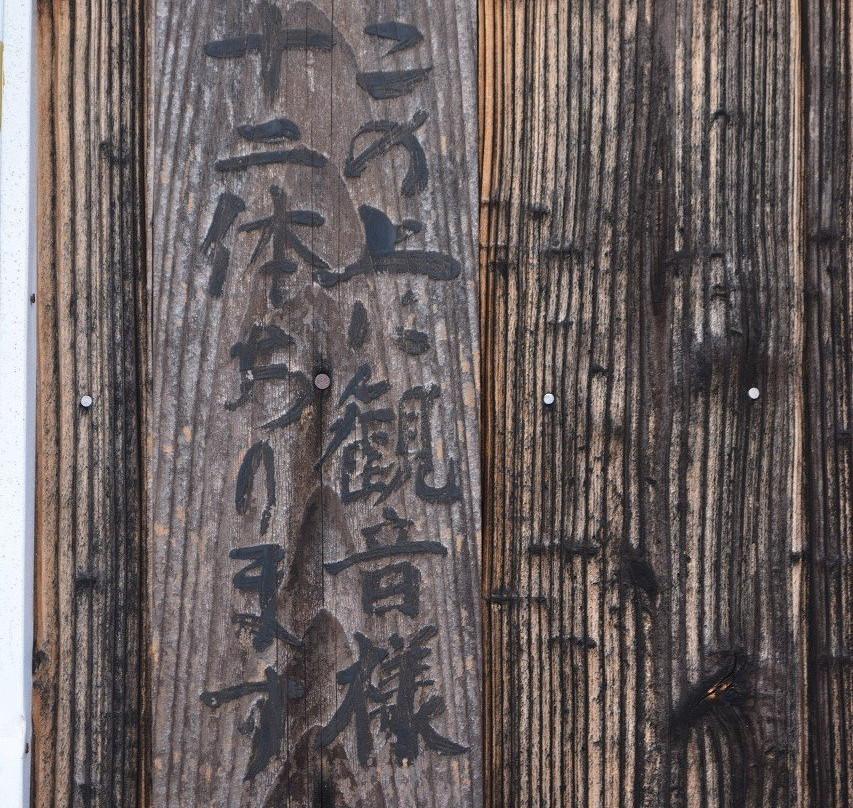 この上に観音様
十二体あります